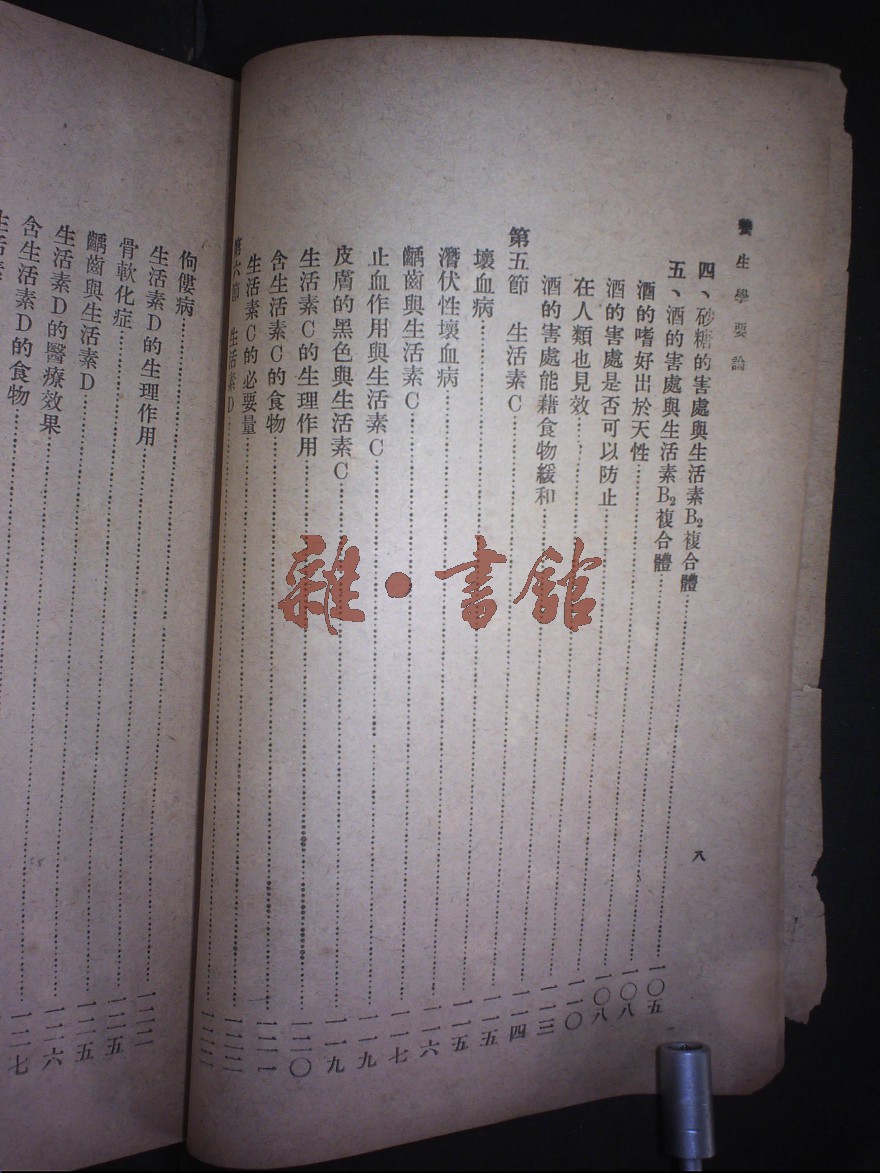 養生學要論
八
四、砂糖的害處與生活素B₂複合體……一〇五
五、酒的害處與生活素B₂複合體……一〇八
酒的嗜好出於天性……一〇八
酒的害處是否可以防止……一一〇
在人類也見效……一一三
酒的害處能藉食物緩和……一一四
第五節 生活素C……一一五
壞血病……一一五
潛伏性壞血病……一一六
齲齒與生活素C……一一七
止血作用與生活素C……一一九
皮膚的黑色與生活素C……一一九
生活素C的生理作用……一二〇
含生活素C的食物……一二一
生活素C的必要量……一二二
第六節 生活素D……一二二
佝僂病……一二二
生活素D的生理作用……一二五
骨軟化症……一二五
齲齒與生活素D……一二六
生活素D的醫療效果……一二七
含生活素D的食物
雜·書館